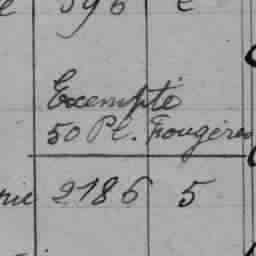 596
Exempté
50 Pl. Fougères
2186 5